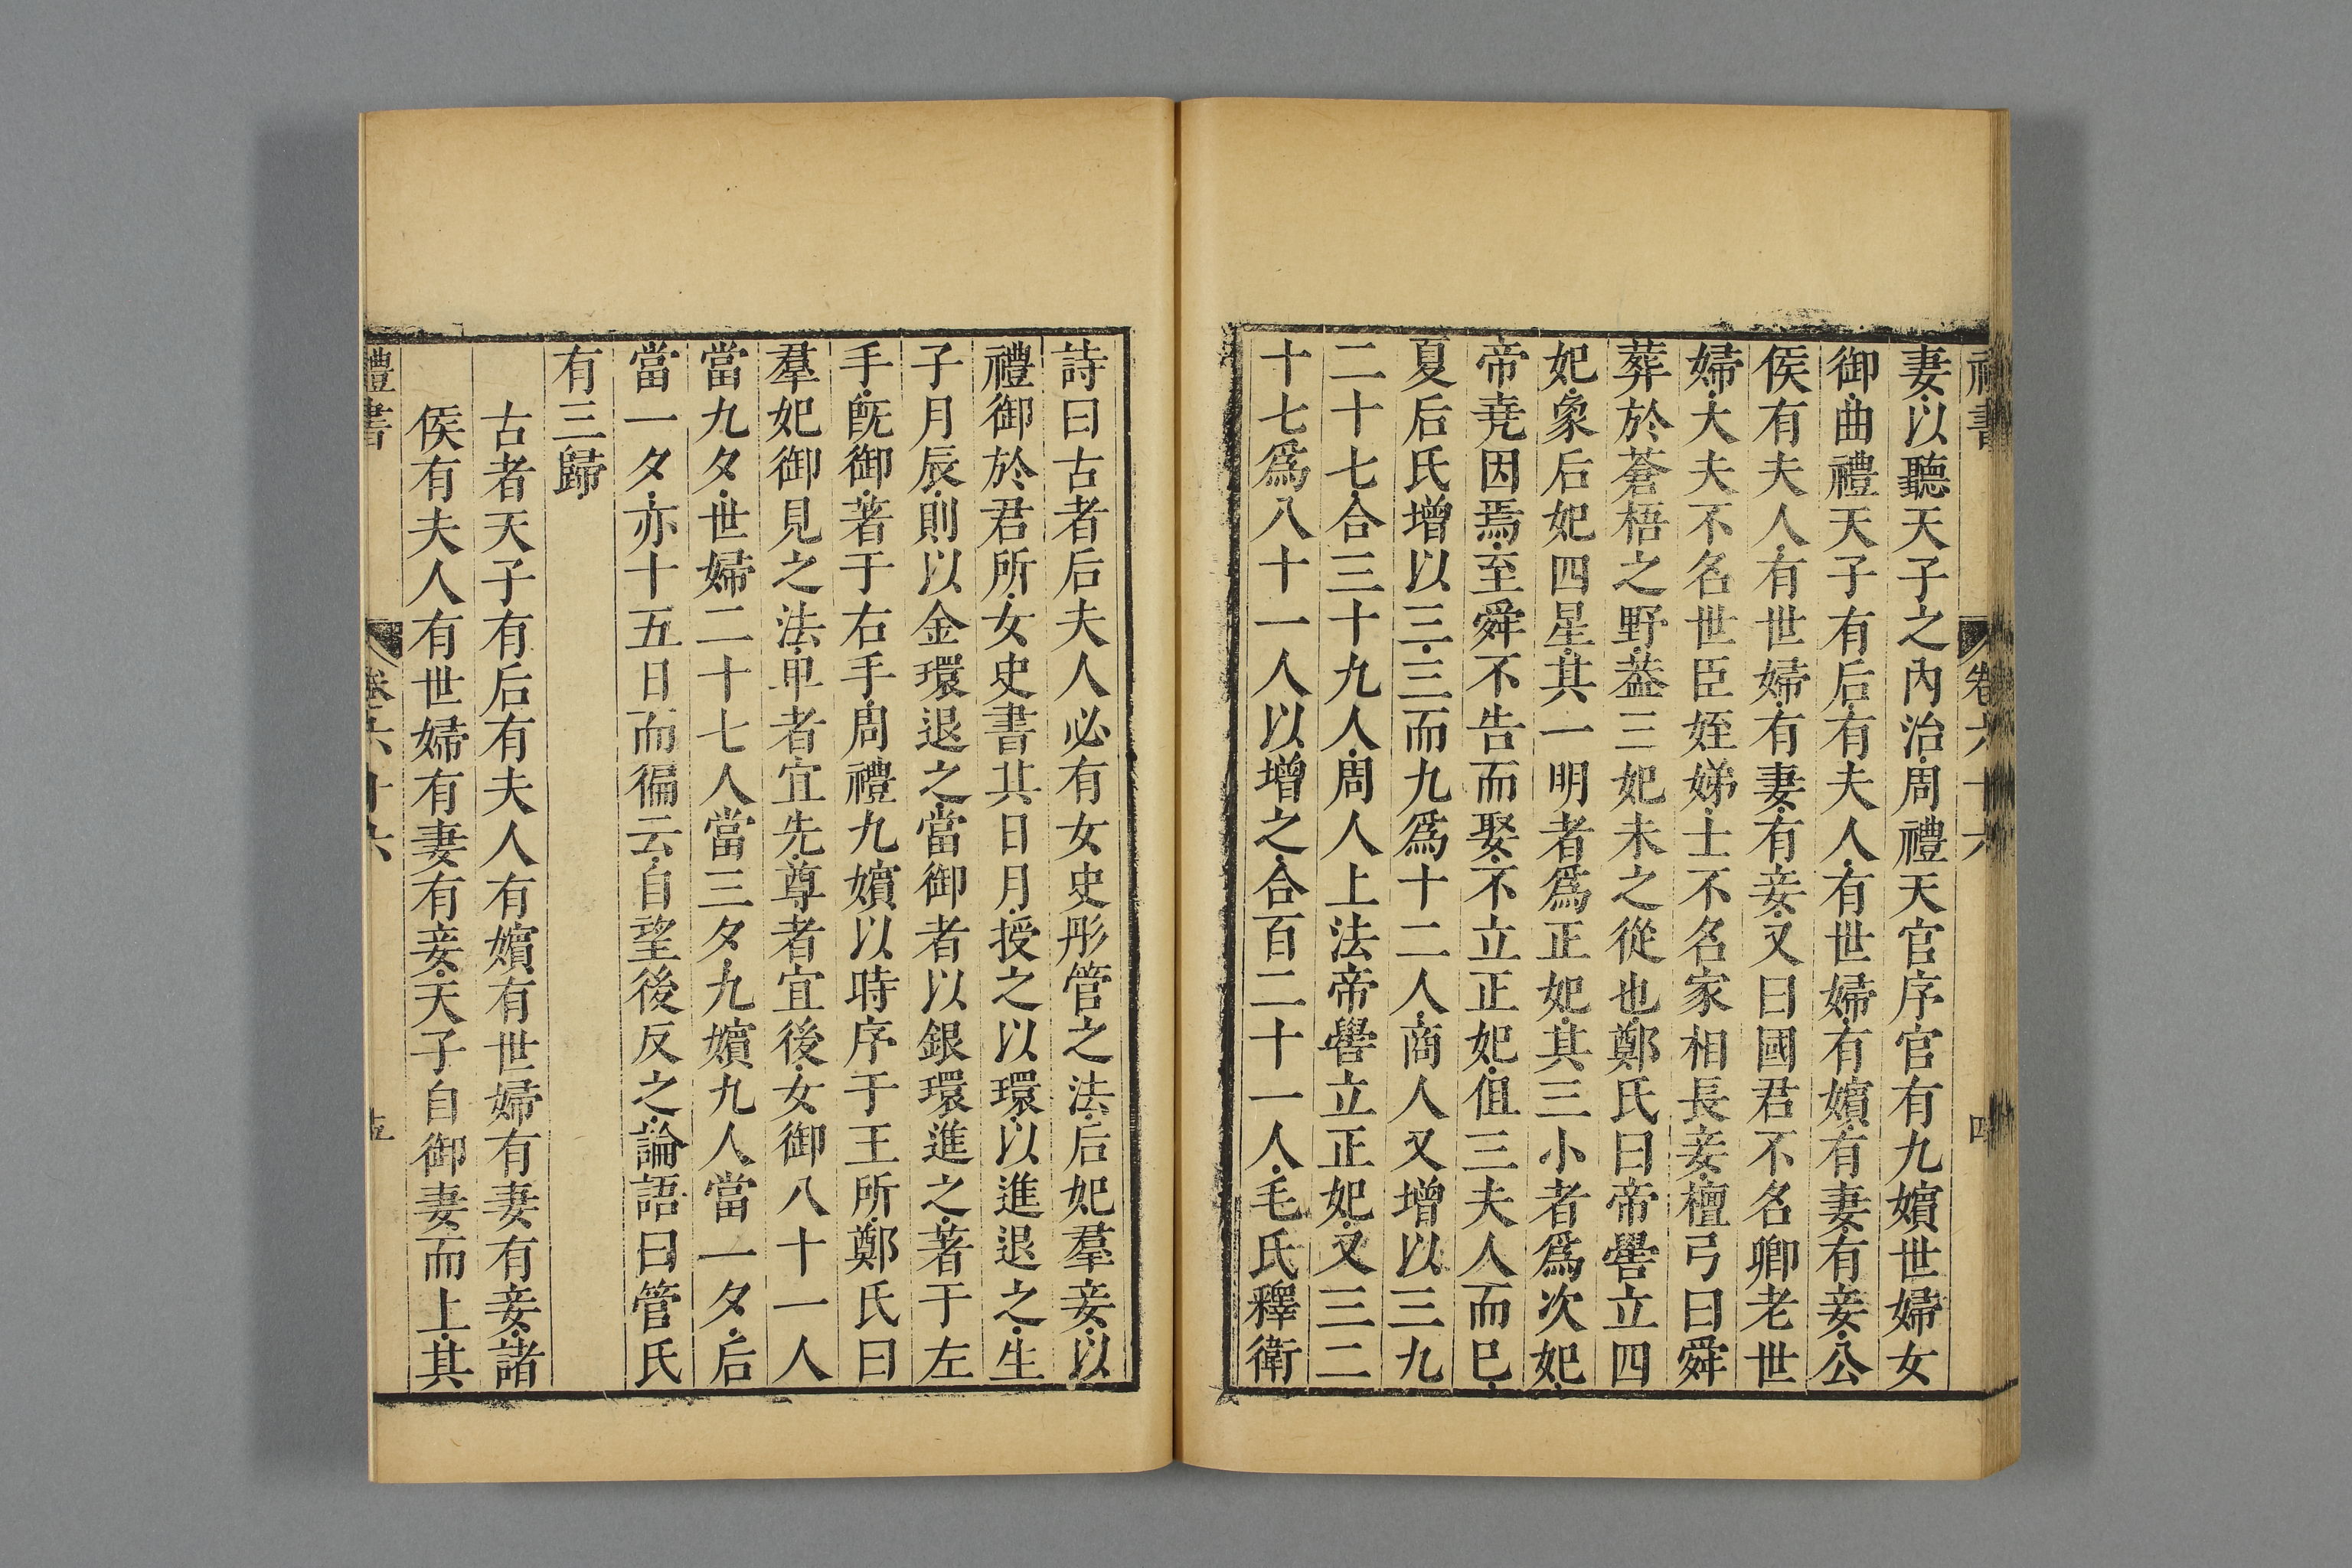 禮書
卷六十六
四
妻以聽天子之內治周禮天官序官有九嬪世婦女
御曲禮天子有后有夫人有世婦有嬪有妻有妾公
侯有夫人有世婦有妻有妾又曰國君不名卿老世
婦大夫不名世臣姪娣士不名家相長妾檀弓曰舜
葬於蒼梧之野葢三妃未之從也鄭氏曰帝嚳立四
妃象后妃四星其一明者爲正妃其三小者爲次妃
帝堯因焉至舜不告而娶不立正妃但三夫人而巳
夏后氏增以三三而九爲十二人商人又增以三九
二十七合三十九人周人上法帝嚳立正妃又三二
十七爲八十一人以增之合百二十一人毛氏釋衛
詩曰古者后夫人必有女史彤管之法后妃羣妾以
禮御於君所女史書其日月授之以環以進退之生
子月辰則以金環退之當御者以銀環進之著于左
手旣御著于右手周禮九嬪以時序于王所鄭氏曰
羣妃御見之法卑者宜先尊者宜後女御八十一人
當九夕世婦二十七人當三夕九嬪九人當一夕后
當一夕亦十五日而徧云自望後反之論語曰管氏
有三歸
古者天子有后有夫人有嬪有世婦有妻有妾諸
侯有夫人有世婦有妻有妾天子自御妻而上其
禮書
卷六十六
五